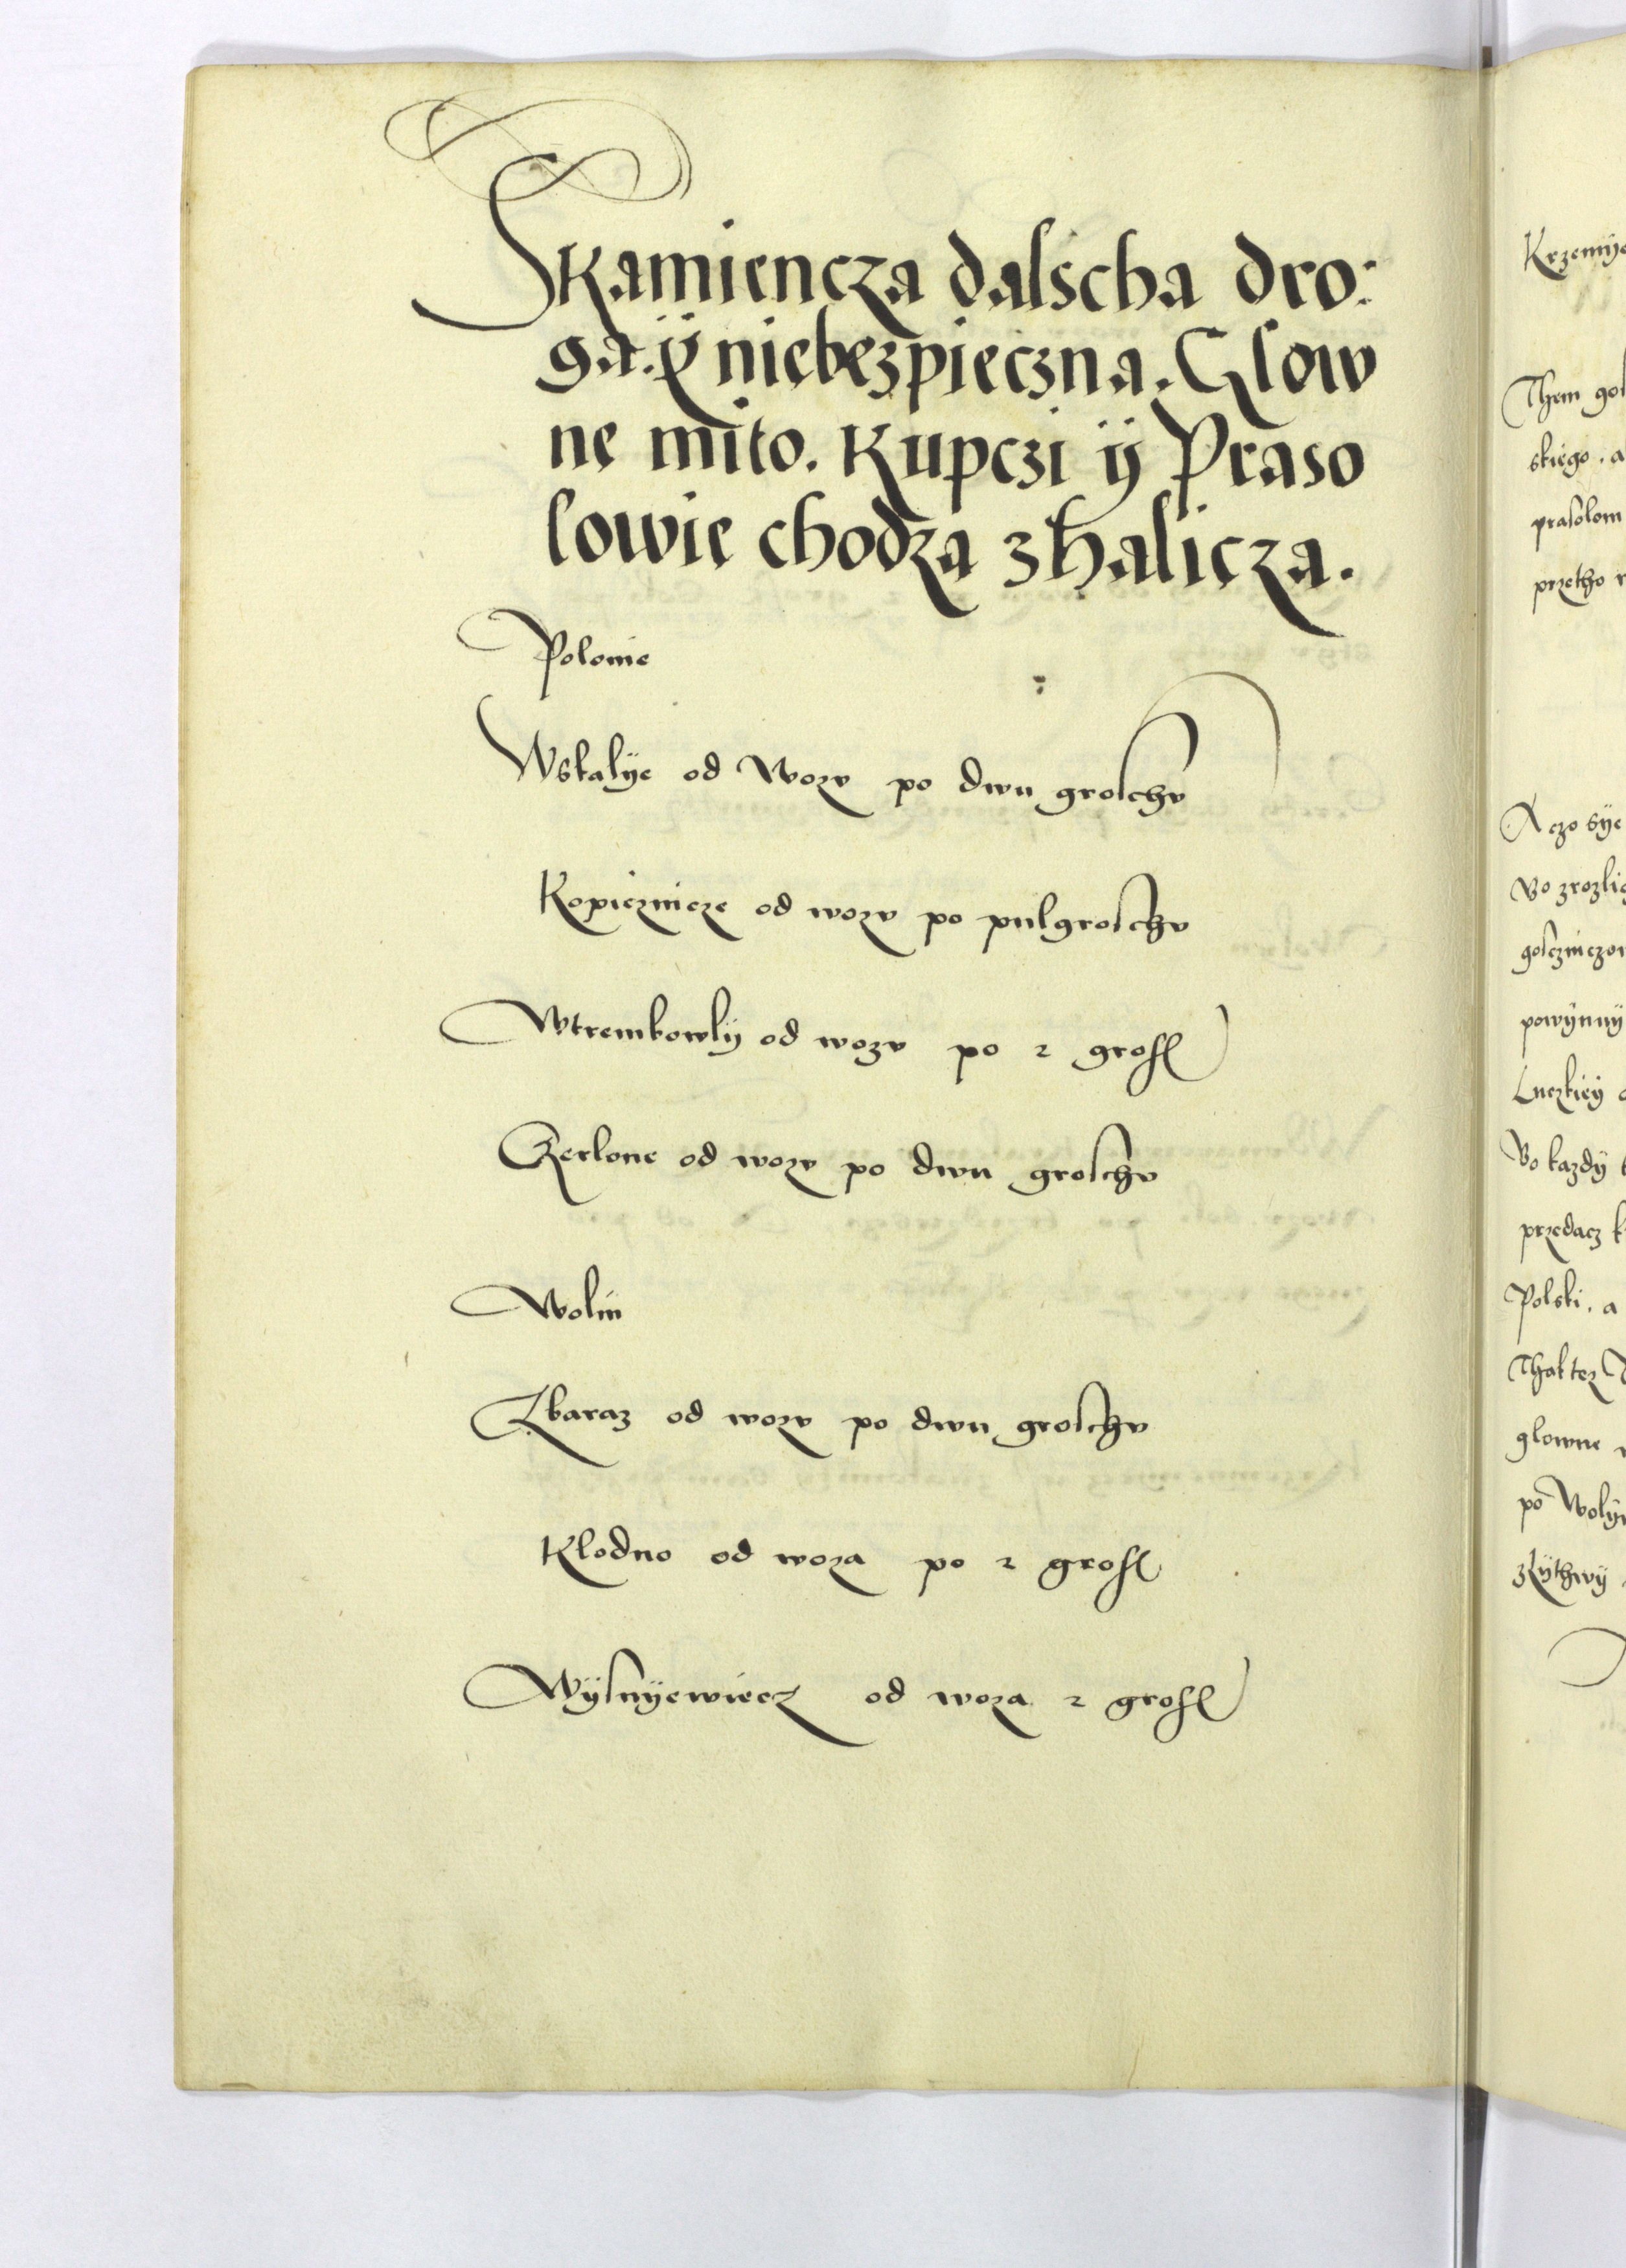 Skamiencza dalscha dro:
ga. ÿ niebezpieczna. Glow
ne mito. Kupczi ÿ Praso
lowie chodza z halicza.
Polonie
Wskalÿe od wozv po dwu groschv
Kopicznicze od wozv po pulgroschv
Wtrembowlÿ od wozv po 2 gross
Czerlone od wozv po dwu groschv
Wolin
Zbaraz od wozv po dwu groschv
Klodno od woza po 2 gross
Wÿsnÿewiecz od woza 2 gross
Them
skiego. a
prasolom
przetho
A czo sÿe
powÿnnÿ
Luczkieÿ
Bo kazdÿ
przedacz
Polski. a
Thak tez
glowne
po
zlÿthwÿ